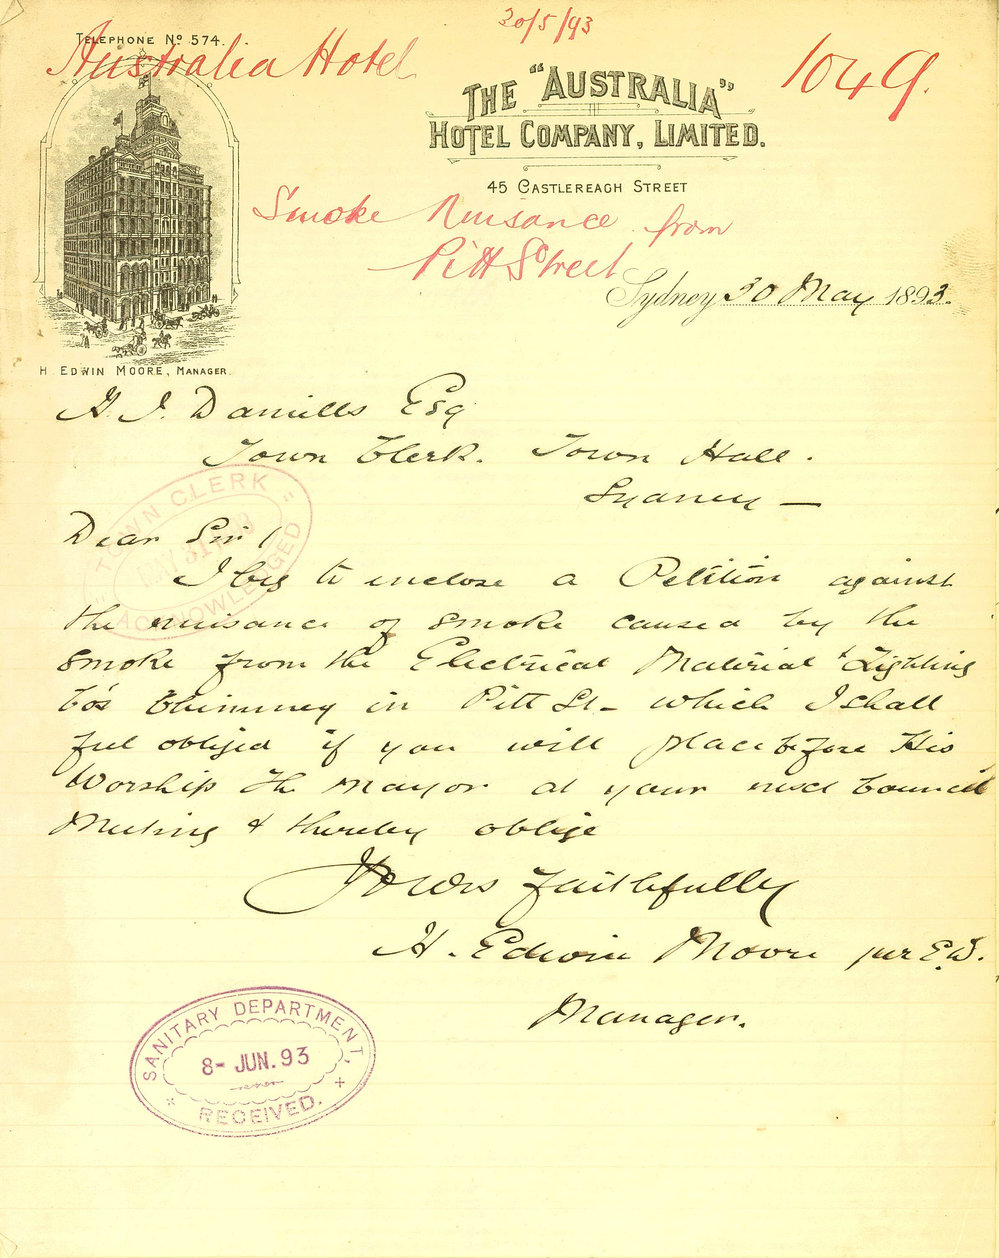 30/5/93
TELEPHONE No 574.
Australia Hotel
1049.
THE "AUSTRALIA"
HOTEL COMPANY, LIMITED.
45 CASTLEREAGH STREET
Smoke Nuisance from
Pitt Street
Sydney 30 May 1893.
H. EDWIN MOORE, MANAGER.
H. J. Daniells Esq
Town Clerk. Town Hall.
Sydney —
TOWN CLERK
MAY 31 93
ACKNOWLEDGED
Dear Sir /
I beg to enclose a Petition against
the nuisance of smoke caused by the
smoke from the Electrical Material & Lighting
Co's Chimney in Pitt St - which I shall
feel obliged if you will place before His
Worship the Mayor at your next Council
Meeting & thereby oblige
Yours faithfully
H. Edwin Moore per E.D.
Manager.
SANITARY DEPARTMENT,
8- JUN. 93
RECEIVED.